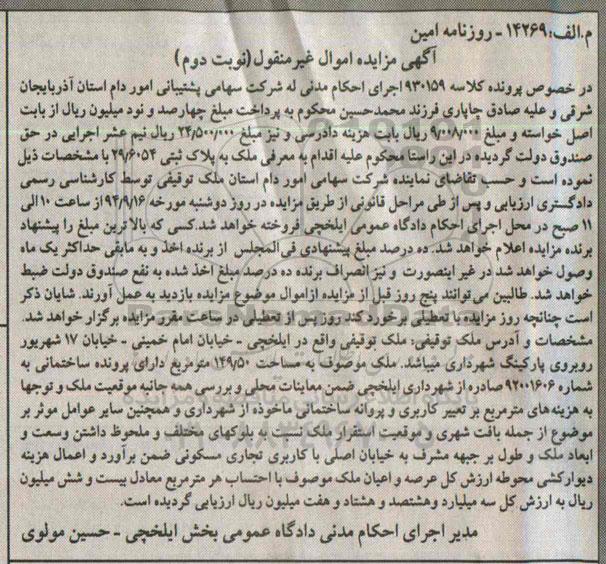 م.الف:۱۴۲۶۹ - روزنامه امین
آگهی مزایده اموال غیرمنقول (نوبت دوم)
در خصوص پرونده کلاسه ۹۳۰۱۵۹ اجرای احکام مدنی له شرکت سهامی پشتیبانی امور دام استان آذربایجان
شرقی و علیه صادق جاپاری فرزند محمدحسین محکوم به پرداخت مبلغ چهارصد و نود میلیون ریال از بابت
اصل خواسته و مبلغ ۹/۰۰۸/۰۰۰ ریال بابت هزینه دادرسی و نیز مبلغ ۲۴/۵۰۰/۰۰۰ ریال نیم عشر اجرایی در حق
صندوق دولت گردیده در این راستا محکوم علیه اقدام به معرفی ملک به پلاک ثبتی ۲۹/۶۰۵۴ با مشخصات ذیل
نموده است و حسب تقاضای نماینده شرکت سهامی امور دام استان ملک توقیفی توسط کارشناسی رسمی
دادگستری ارزیابی و پس از طی مراحل قانونی از طریق مزایده در روز دوشنبه مورخه ۹۴/۹/۱۶ از ساعت ۱۰ الی
۱۱ صبح در محل اجرای احکام دادگاه عمومی ایلخچی فروخته خواهد شد.کسی که بالاترین مبلغ را پیشنهاد
برنده مزایده اعلام خواهد شد. ده درصد مبلغ پیشنهادی فی المجلس از برنده اخذ و به مابقی حداکثر یک ماه
وصول خواهد شد در غیر اینصورت و نیز انصراف برنده ده درصد مبلغ اخذ شده به نفع صندوق دولت ضبط
خواهد شد. طالبین می توانند پنج روز قبل از مزایده ازاموال موضوع مزایده بازدید به عمل آورند. شایان ذکر
است چنانچه روز مزایده با تعطیلی برخورد کند روز پس از تعطیلی در ساعت مقرر مزایده برگزار خواهد شد.
مشخصات و آدرس ملک توقیفی: ملک توقیفی واقع در ایلخچی - خیابان امام خمینی - خیابان ۱۷ شهریور
روبروی پارکینگ شهرداری میباشد. ملک موصوف به مساحت ۱۴۹/۵۰ مترمربع دارای پرونده ساختمانی به
شماره ۹۲۰۰۱۶۰۶ صادره از شهرداری ایلخچی ضمن معاینات محلی و بررسی همه جانبه موقعیت ملک و توجها
به هزینه های مترمربع بر تغییر کاربری و پروانه ساختمانی ماخوذه از شهرداری و همچنین سایر عوامل موثر بر
موضوع از جمله بافت شهری و موقعیت استقرار ملک نسبت به بلوکهای مختلف و ملحوظ داشتن وسعت و
ابعاد ملک و طول بر جبهه مشرف به خیابان اصلی با کاربری تجاری مسکونی ضمن برآورد و اعمال هزینه
دیوارکشی محوطه ارزش کل عرصه و اعیان ملک موصوف با احتساب هر مترمربع معادل بیست و شش میلیون
ریال به ارزش کل سه میلیارد وهشتصد و هشتاد و هفت میلیون ریال ارزیابی گردیده است.
مدیر اجرای احکام مدنی دادگاه عمومی بخش ایلخچی - حسین مولوی